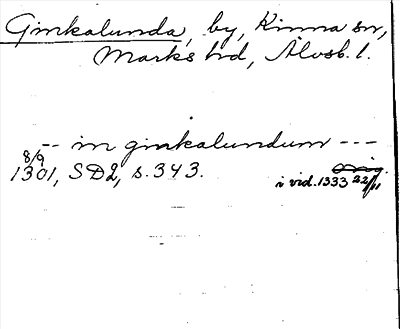 Ginkalunda, by, Kinna sn,
Marks hd, Älvsb. l.
-- in ginkalundum ---
8/9
1301, SD2, s. 343. orig.
i vid. 1333 22/11